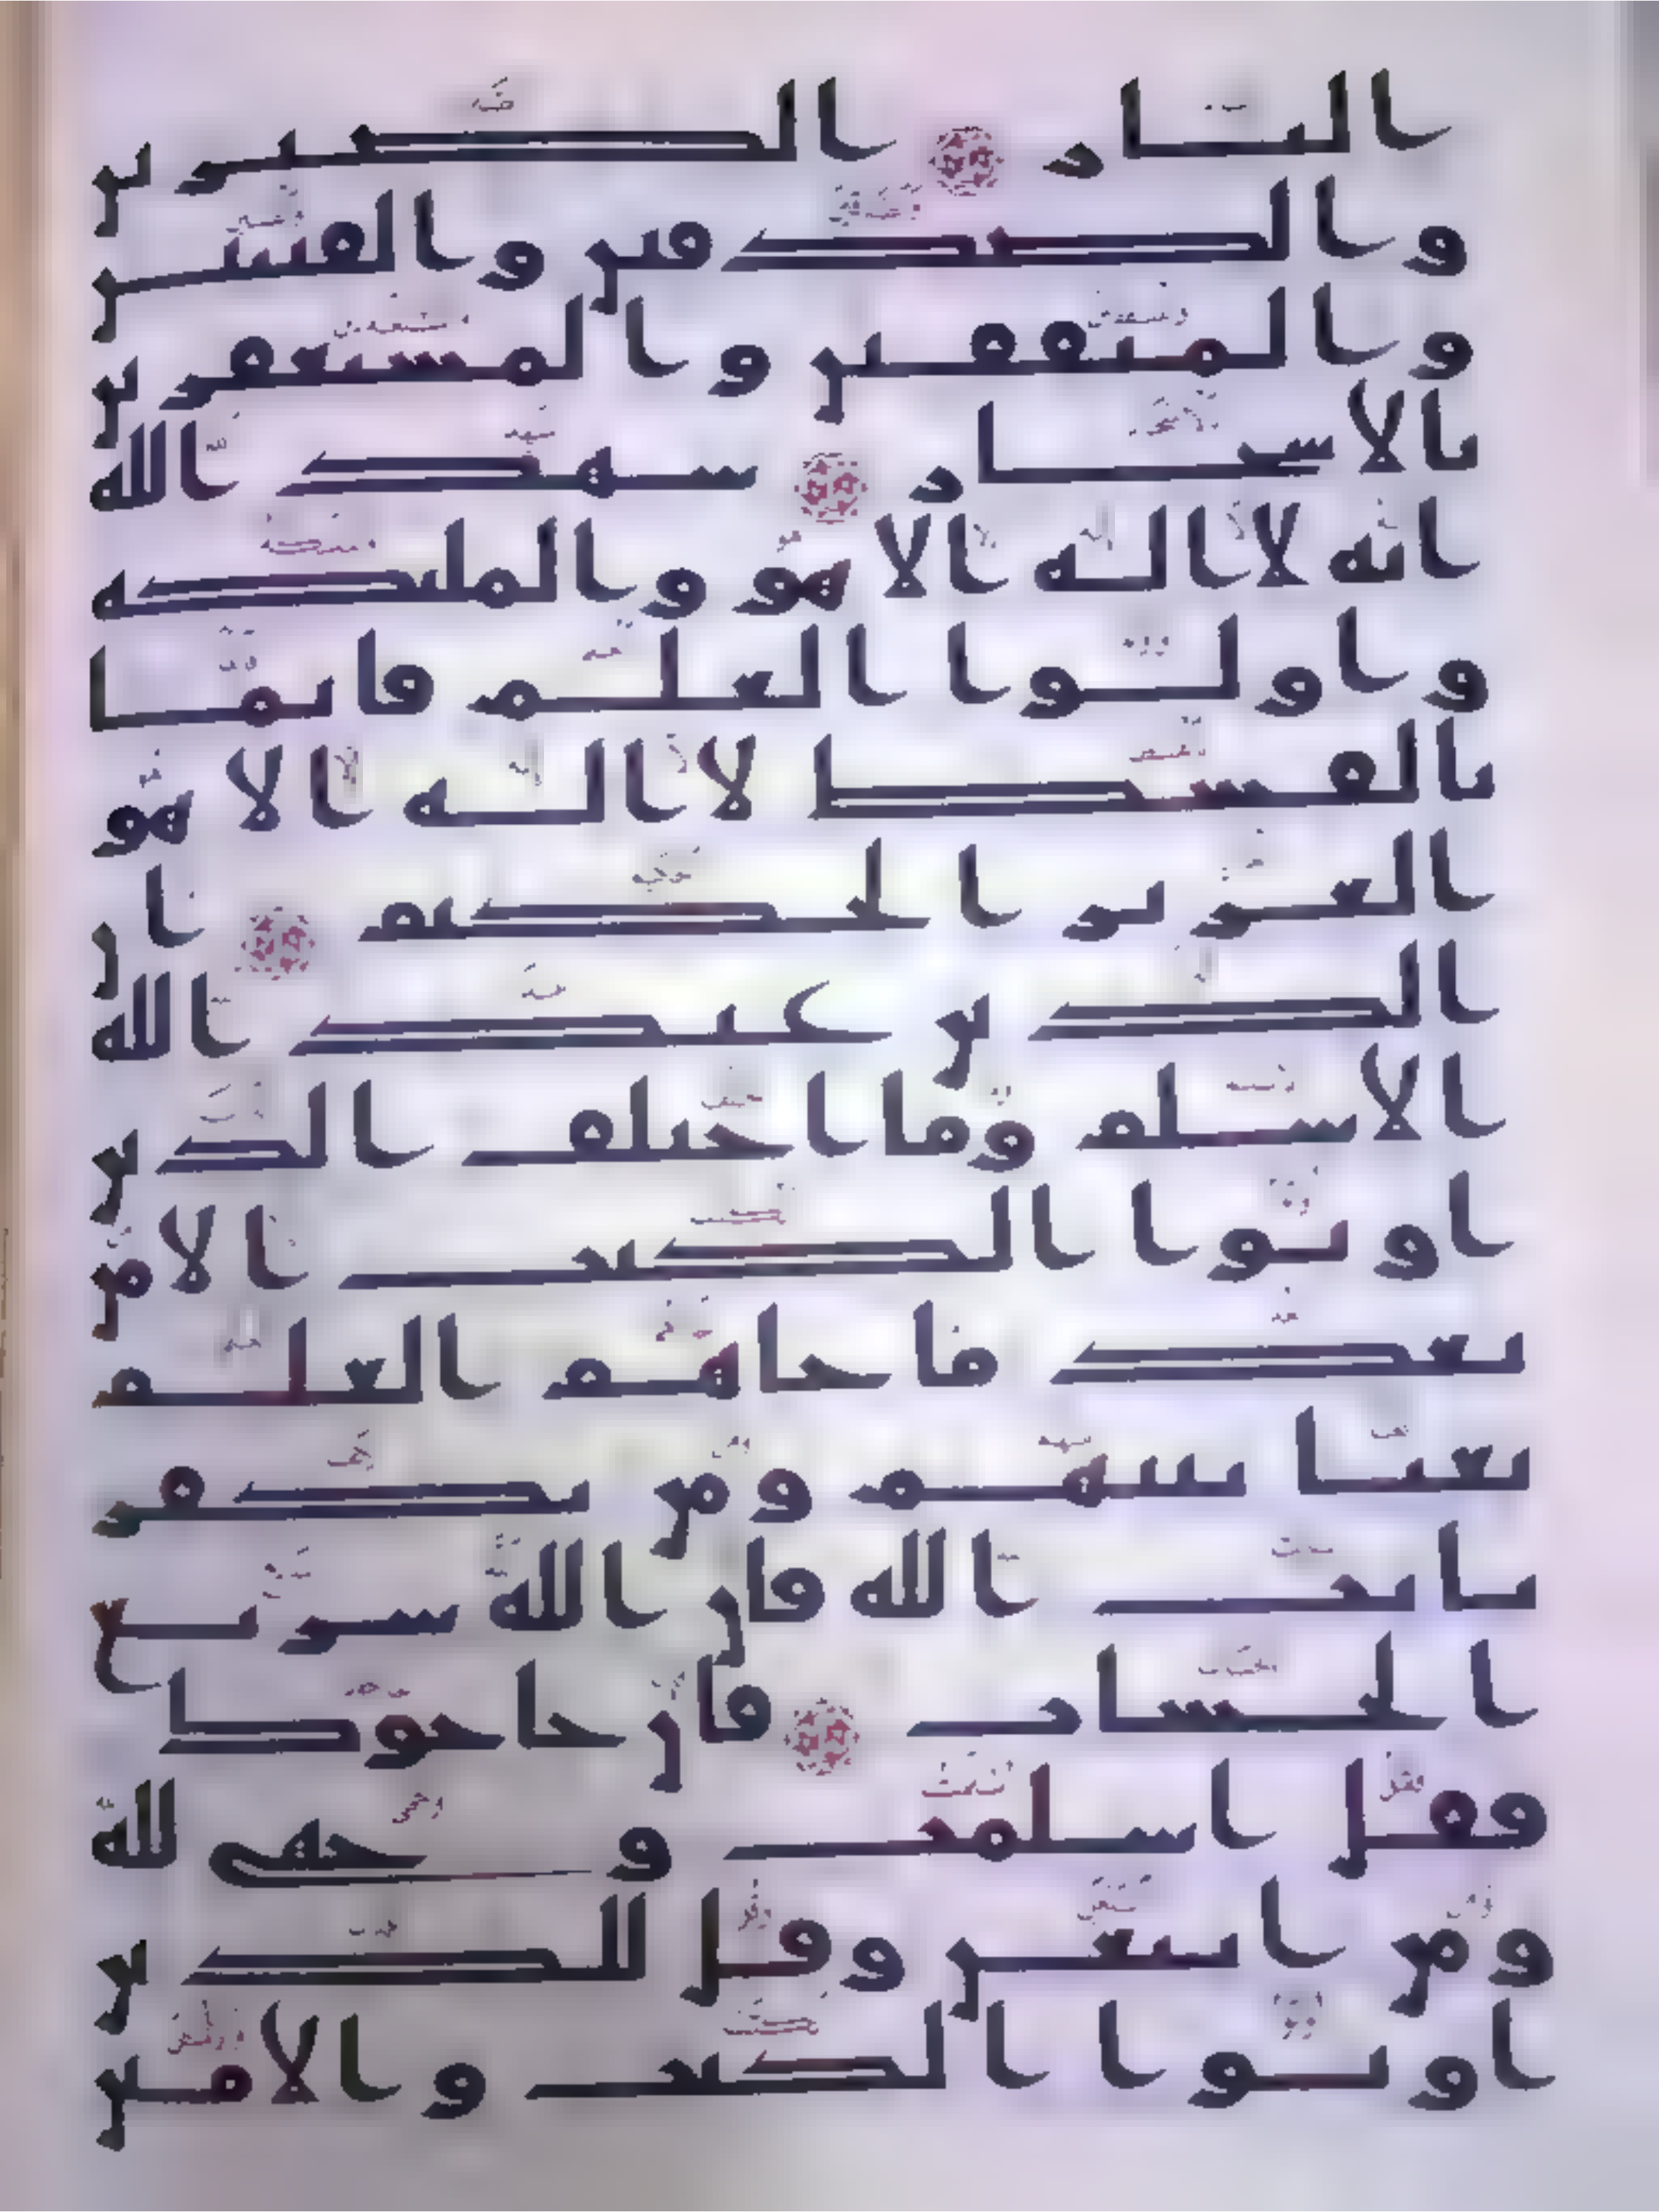 النار الصبرين
والصدقين والقنتين
والمنفقين والمستغفرين
بالاسحار شهد الله
انه لا اله الا هو والملئكة
واولوا العلم قائما
بالقسط لا اله الا هو
العزيز الحكيم ان
الدين عند الله
الاسلم وما اختلف الذين
اوتوا الكتب الا من
بعد ما جاهم العلم
بغيا بينهم ومن يكفر
بايت الله فان الله سريع
الحساب فان حاجوك
فقل اسلمت وجهي لله
ومن اتبعن وقل للذين
اوتوا الكتب والامين